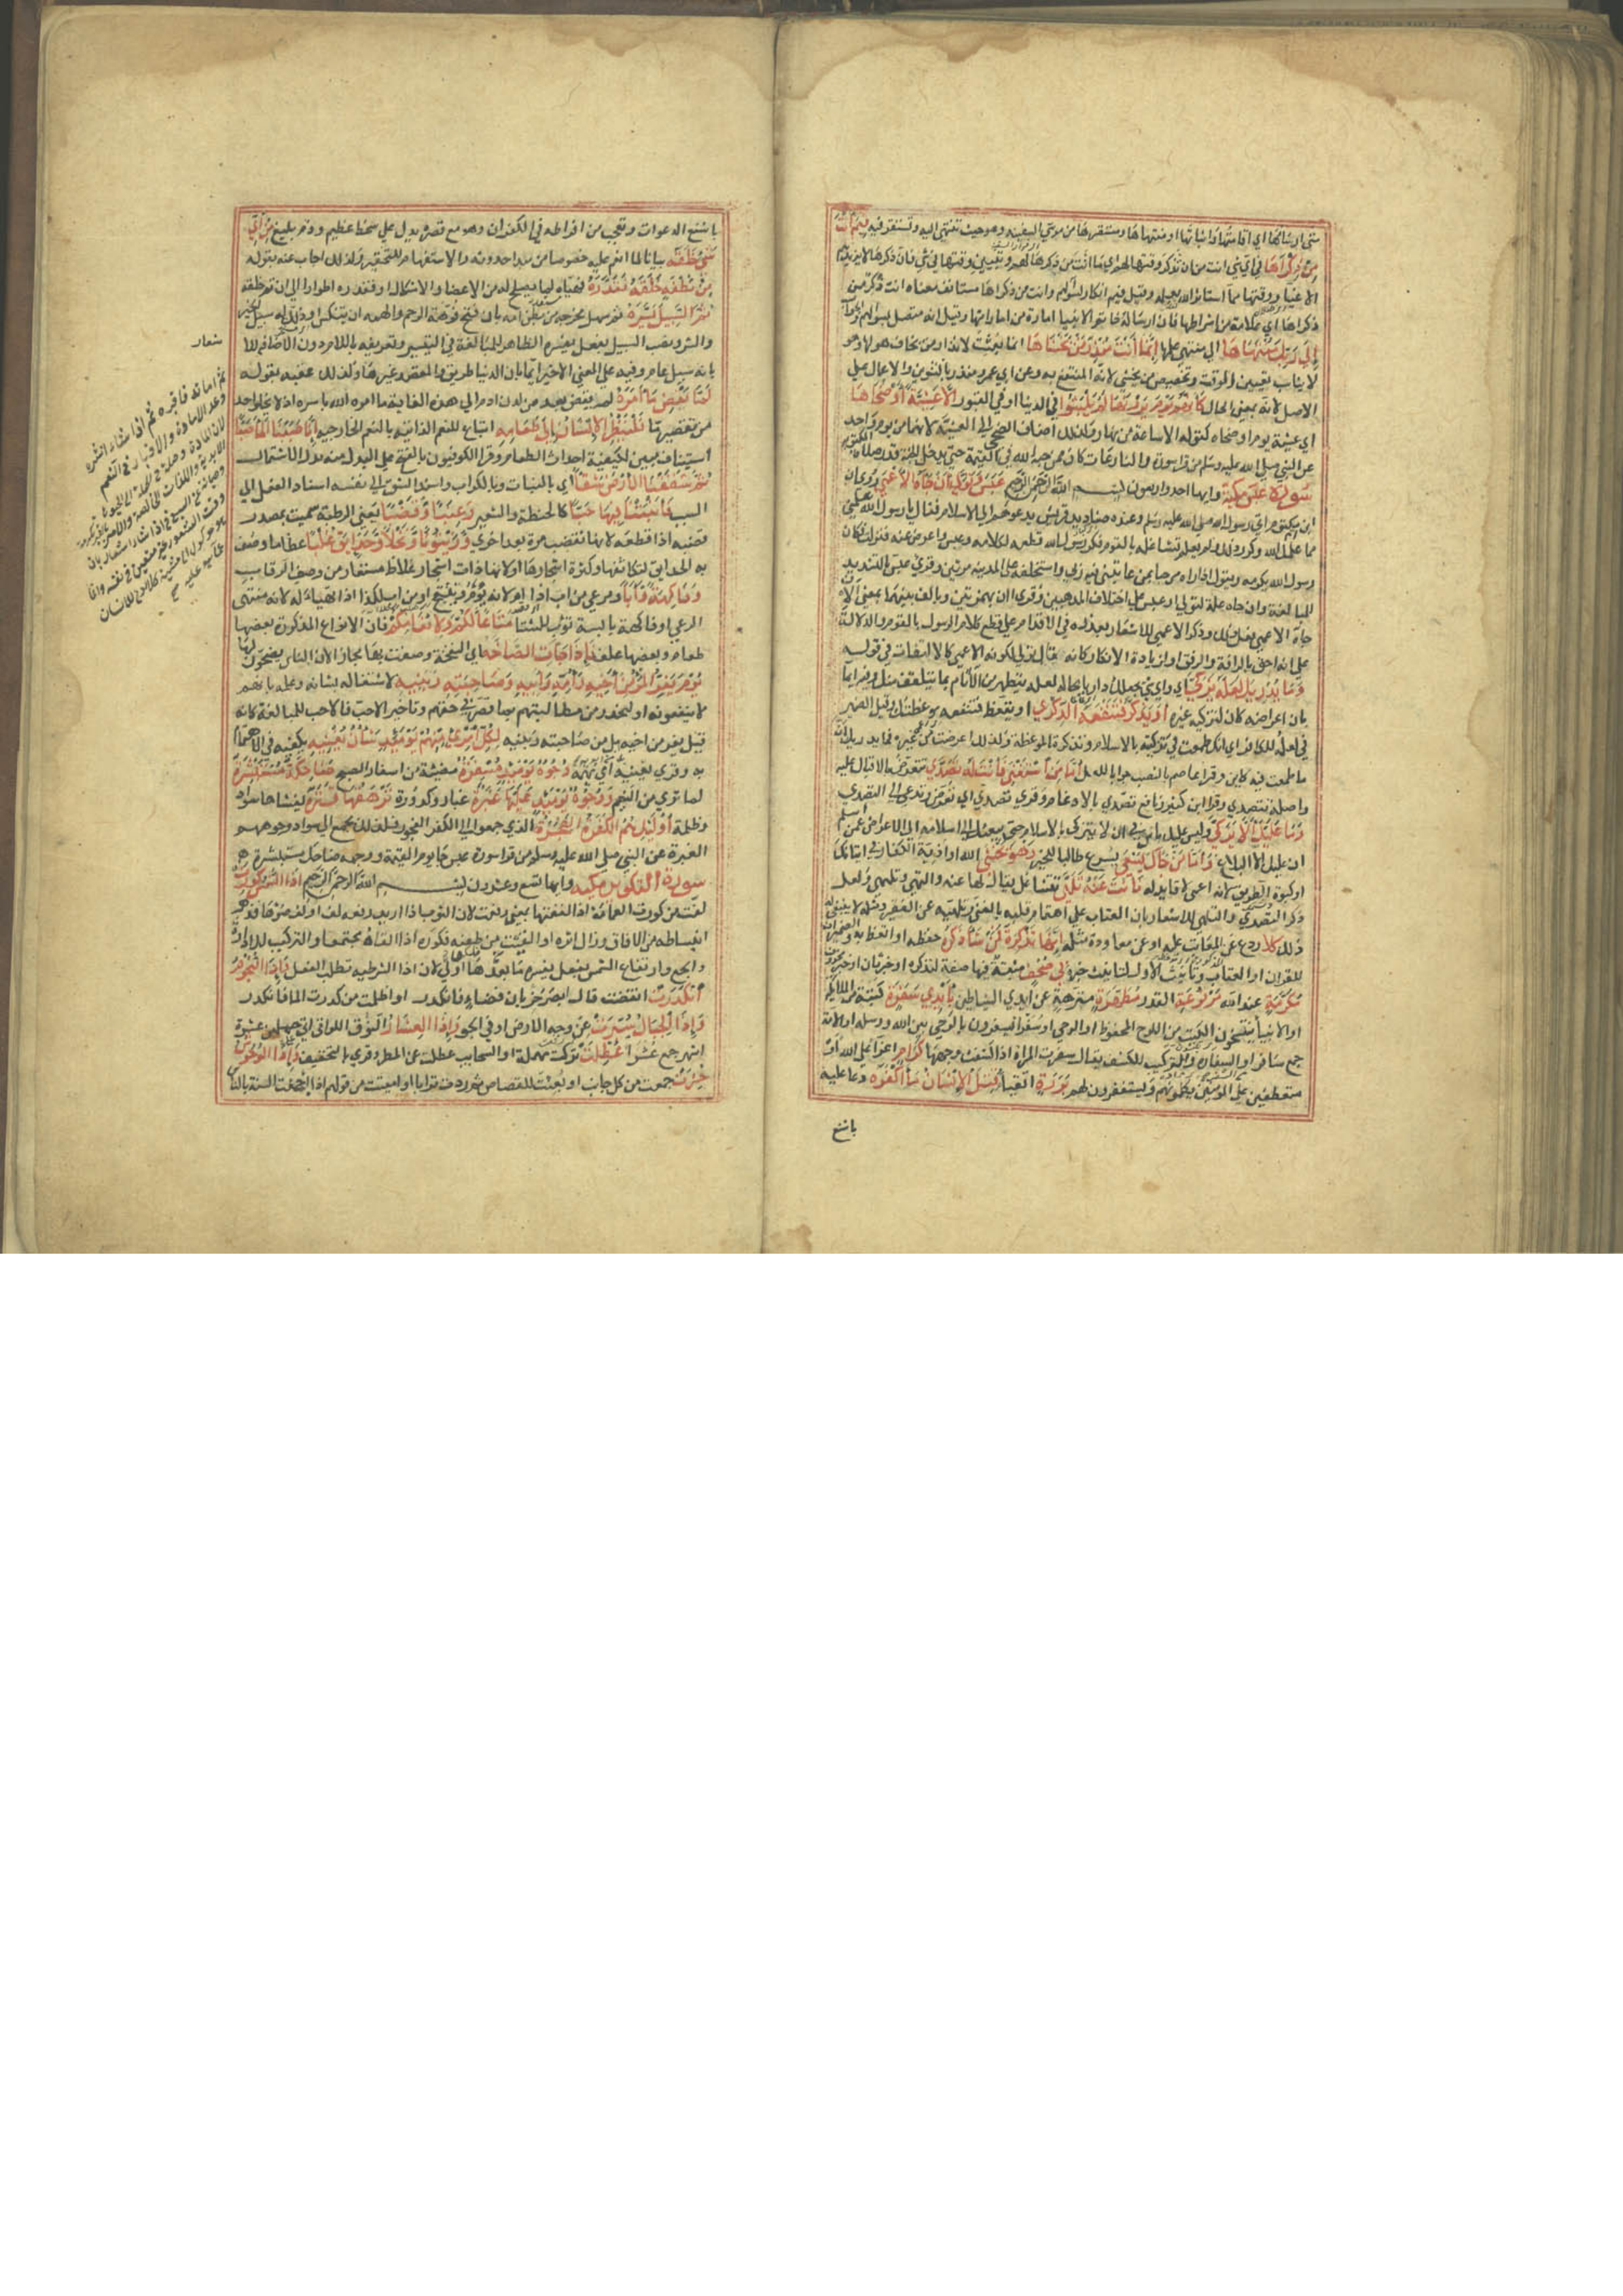 متى ارساؤها اي اقامتها واثباتها او منتهاها ومستقرها من مرسى السفينة وهو حيث تنتهي اليه وتستقر فيه فيم انت
من ذكراها في اي شي انت من ان تذكر وقتها لهم اي ما انت من ذكرها لهم وتبيين وقتها في شي فان ذكرها لا يزيدهم
الا غيا ووقتها مما استاثر الله بعلمه وقيل فيم انكار لسؤالهم وانت من ذكراها مستانف معناه انت ذكر من
ذكراها اي علامة من اشراطها فان ارساله خاتم الانبيا امارة من اماراتها وقيل انه متصل بسؤالهم والجواب
الي ربك منتهاها اي منتهى علمها انما انت منذر من يخشاها انما بعثت لانذار من يخاف هولها وهو
لا يناسب تعيين الوقت وتخصيص من يخشى لانه المنتفع به وعن ابي عمرو منذر بالتنوين والاعمال علي
الاصل لانه بمعنى الحال كانهم يوم يرونها لم يلبثوا في الدنيا او في القبور الا عشية او ضحاها
اي عشية يوم او ضحاه كقوله الا ساعة من نهار ولذلك اضاف الضحى الي العشية لانهما من يوم واحد
عن النبي صلي الله عليه وسلم من قرا سورة والنازعات كان ممن حبسه الله في القيمة حتى يدخل الجنة قدر صلاة المكتوبة
سورة عبس مكية وايها احد واربعون بسم الله الرحمن الرحيم عبس وتولي ان جاه الاعمي روي ان
ابن ام مكتوم اتي رسول الله صلي الله عليه وسلم وعنده صناديد قريش يدعوهم الي الاسلام فقال يا رسول الله علمني
مما علمك الله وكرر ذلك ولم يعلم تشاغله بالقوم فكره رسول الله قطعه لكلامه وعبس واعرض عنه فنزلت فكان
رسول الله يكرمه ويقول اذا راه مرحبا بمن عاتبني فيه ربي واستخلفه على المدينه مرتين وقري عبس بالتشديد
للمبالغة وان جاه علة لتولي او عبس على اختلاف المذهبين وقري اان بهمزتين وبالف بينهما بمعنى الان
جاه الاعمي فعل ذلك وذكر الاعمي للاشعار بعذره في الاقدام علي قطع كلام الرسول بالقوم والدلالة
علي انه احق بالرافة والرفق او لزيادة الانكار كانه قال تولي لكونه الاعمى كالالتفات في قوله
وما يدريك لعله يزكي اي واي شي يجعلك داريا بحاله لعله يتطهر من الآثام بما يتلقف منك وفيه ايما
بان اعراضه كان لتزكيه غيره او يذكر فتنفعه الذكري او يتعظ فتنفعه موعظتك وقيل الضمير
في لعله للكافر اي انك طمعت في تزكيته بالاسلام وتذكره الموعظة ولذلك اعرضت عن غيره فما يدريك ان
ما طمعت فيه كاين وقرا عاصم بالنصب جوابا للعل اما من استغنى فانت له تصدي تتعرض بالاقبال عليه
واصله تتصدي وقرا ابن كثير ونافع تصدي بالادغام وقري تصدي اي تعرض وتدعى الي التصدي
وما عليك الا يزكي وليس عليك باس في ان لا يتزكى بالاسلام حتى يبعثك الحرص الي اسلامه الي الاعراض عمن اسلم
ان عليك الا البلاغ واما من جاك يسعي يسرع طالبا للخير وهو يخشى الله او اذية الكفار في اتيانك
او كبوة الطريق لانه اعمى لا قايد له فانت عنه تلهى تتشاغل يقال لها عنه والتهى وتلهى ولعل
ذكر التصدي والتلهي للاشعار بان العتاب علي اهتمام قلبه بالغني وتلهيه عن الفقير ومثله لا ينبغي له
ذلك كلا ردع عن المعاتب عليه او عن معاودة مثله انها تذكرة فمن شا ذكره حفظه او اتعظ به والضميران
للقران او العتاب وتانيث الاول لتانيث خبره في صحف مثبتة فيها صفة لتذكره او خبر ثان او خبر محذوف
مكرمة عند الله مرفوعة القدر مطهرة منزهة عن ايدي الشياطين بايدي سفرة كتبة من الملايكه
او الانبيا ينتسخون الكتب من اللوح المحفوظ او الوحي او سفرا يسفرون بالوحي بين الله ورسله او الامة
جمع سافر او السفارة والتركيب للكشف يقال سفرت المراة اذا كشفت وجهها كرام اعزا على الله او
متعطفين علي المؤمنين يكلمونهم ويستغفرون لهم بررة اتقيا قتل الانسان ما اكفره دعا عليه
باشنع
باشنع الدعوات وتعجب من افراطه في الكفران وهو مع قصره يدل علي سخط عظيم وذم بليغ من اي
شي خلقه بيان لما انعم عليه خصوصا من مبدا حدوثه والاستفهام للتحقير ولذلك اجاب عنه بقوله
من نطفة خلقه فقدره فهياه لما يصلح له من الاعضا والاشكال او فقدره اطوارا الي ان تم خلقه
ثم السبيل يسره ثم سهل مخرجه من بطن امه بان فتح فوهة الرحم والهمه ان ينتكس او ذلل له سبيل الخير
والشر ونصب السبيل بفعل يفسره الظاهر للمبالغة في التيسير وتعريفه باللام دون الاضافه للاشعار
بانه سبيل عام وفيه علي المعنى الاخير ايما بان الدنيا طريق والمقصد غيرها ولذلك عقبه بقوله
لما يقض ما امره لم يقض بعد من لدن ادم الي هذه الغاية ما امره الله باسره اذ لا يخلو احد
من تقصير ما فلينظر الانسان الي طعامه اتباع للنعم الذاتيه بالنعم الخارجيه انا صببنا الما صبا
استيناف مبين لكيفية احداث الطعام وقرا الكوفيون بالفتح علي البدل منه بدل الاشتمال
ثم شققنا الارض شقا اي بالنبات او بالكراب واسند الشق الي نفسه اسناد الفعل الي
السبب فانبتنا فيها حبا كالحنطة والشعير وعنبا وقضبا يعني الرطبة سميت بمصدر
قضبه اذا قطعه لانها تقضب مرة بعد اخري وزيتونا ونخلا وحدايق غلبا عظاما وصف
به الحدايق لتكاثفها وكثرة اشجارها او لانها ذات اشجار غلاظ مستعار من وصف الرقاب
وفاكهة وابا ومرعي من اب اذا ام لانه يؤم وينتجع او من اب لكذا اذا تهيا له لانه متهيئ
للرعي او فاكهة يابسة تؤب للشتا متاعا لكم ولانعامكم فان الانواع المذكورة بعضها
طعام وبعضها علف فاذا جات الصاخة اي النفخة وصفت بها مجازا لان الناس يصخون لها
يوم يفر المرء من اخيه وامه وابيه وصاحبته وبنيه لاشتغاله بشانه وعلمه بانهم
لا ينفعونه او للحذر من مطالبتهم بما قصر في حقهم وتاخير الاحب فالاحب للمبالغة كانه
قيل يفر من اخيه بل من ابويه بل من صاحبته وبنيه لكل امرئ منهم يومئذ شان يغنيه يكفيه في الاهتمام
به وقري يعنيه اي يهمه وجوه يومئذ مسفرة مضيئة من اسفار الصبح ضاحكة مستبشرة
لما تري من النعيم ووجوه يومئذ عليها غبرة غبار وكدورة ترهقها قترة يغشاها سواد
وظلمة اولئك هم الكفرة الفجرة الذي جمعوا الي الكفر الفجور فلذلك يجمع الي سواد وجوههم
الغبرة عن النبي صلي الله عليه وسلم من قرا سورة عبس جا يوم القيمة ووجهه ضاحك مستبشر
سورة التكوير مكيه وايها تسع وعشرون بسم الله الرحمن الرحيم اذا الشمس كورت
لفت من كورت العمامة اذا لففتها بمعنى رفعت لان الثوب اذا اريد رفعه لف او لف ضوءها فذهب
انبساطه من الافاق وزال اثره او القيت من طعنه فكوره اذا القاه مجتمعا والتركيب للادارة
والجمع وارتفاع الشمس بفعل يفسره ما بعدها اولى لان اذا الشرطيه تطلب الفعل واذا النجوم
انكدرت انقضت قال ابصر خربان فضاء فانكدر او اظلمت من كدرت الما فانكدر
واذا الجبال سيرت عن وجه الارض او في الجو واذا العشار النوق اللواتي اتي على حملهن عشرة
اشهر جمع عشرا عطلت تركت مهملة او السحايب عطلت عن المطر وقري بالتخفيف واذا الوحوش
حشرت جمعت من كل جانب او بعثت للقصاص ثم ردت ترابا او اميتت من قولهم اذا اجحفت السنة بالناس
شعار
ثم اماته فاقبره ثم اذا شاء انشره
وعد الاماتة والاقبار في النعم
لان الاماتة وصلة في الجملة الي الحيوة
الابدية واللذات الخالصة والامر بالقبر تكرمة
وصيانة عن السباع وفي اذا شاء اشعار بان
وقت النشور غير متعين في نفسه وانما
هو موكول الي مشيته كلا ردع للانسان
عما هو عليه صح